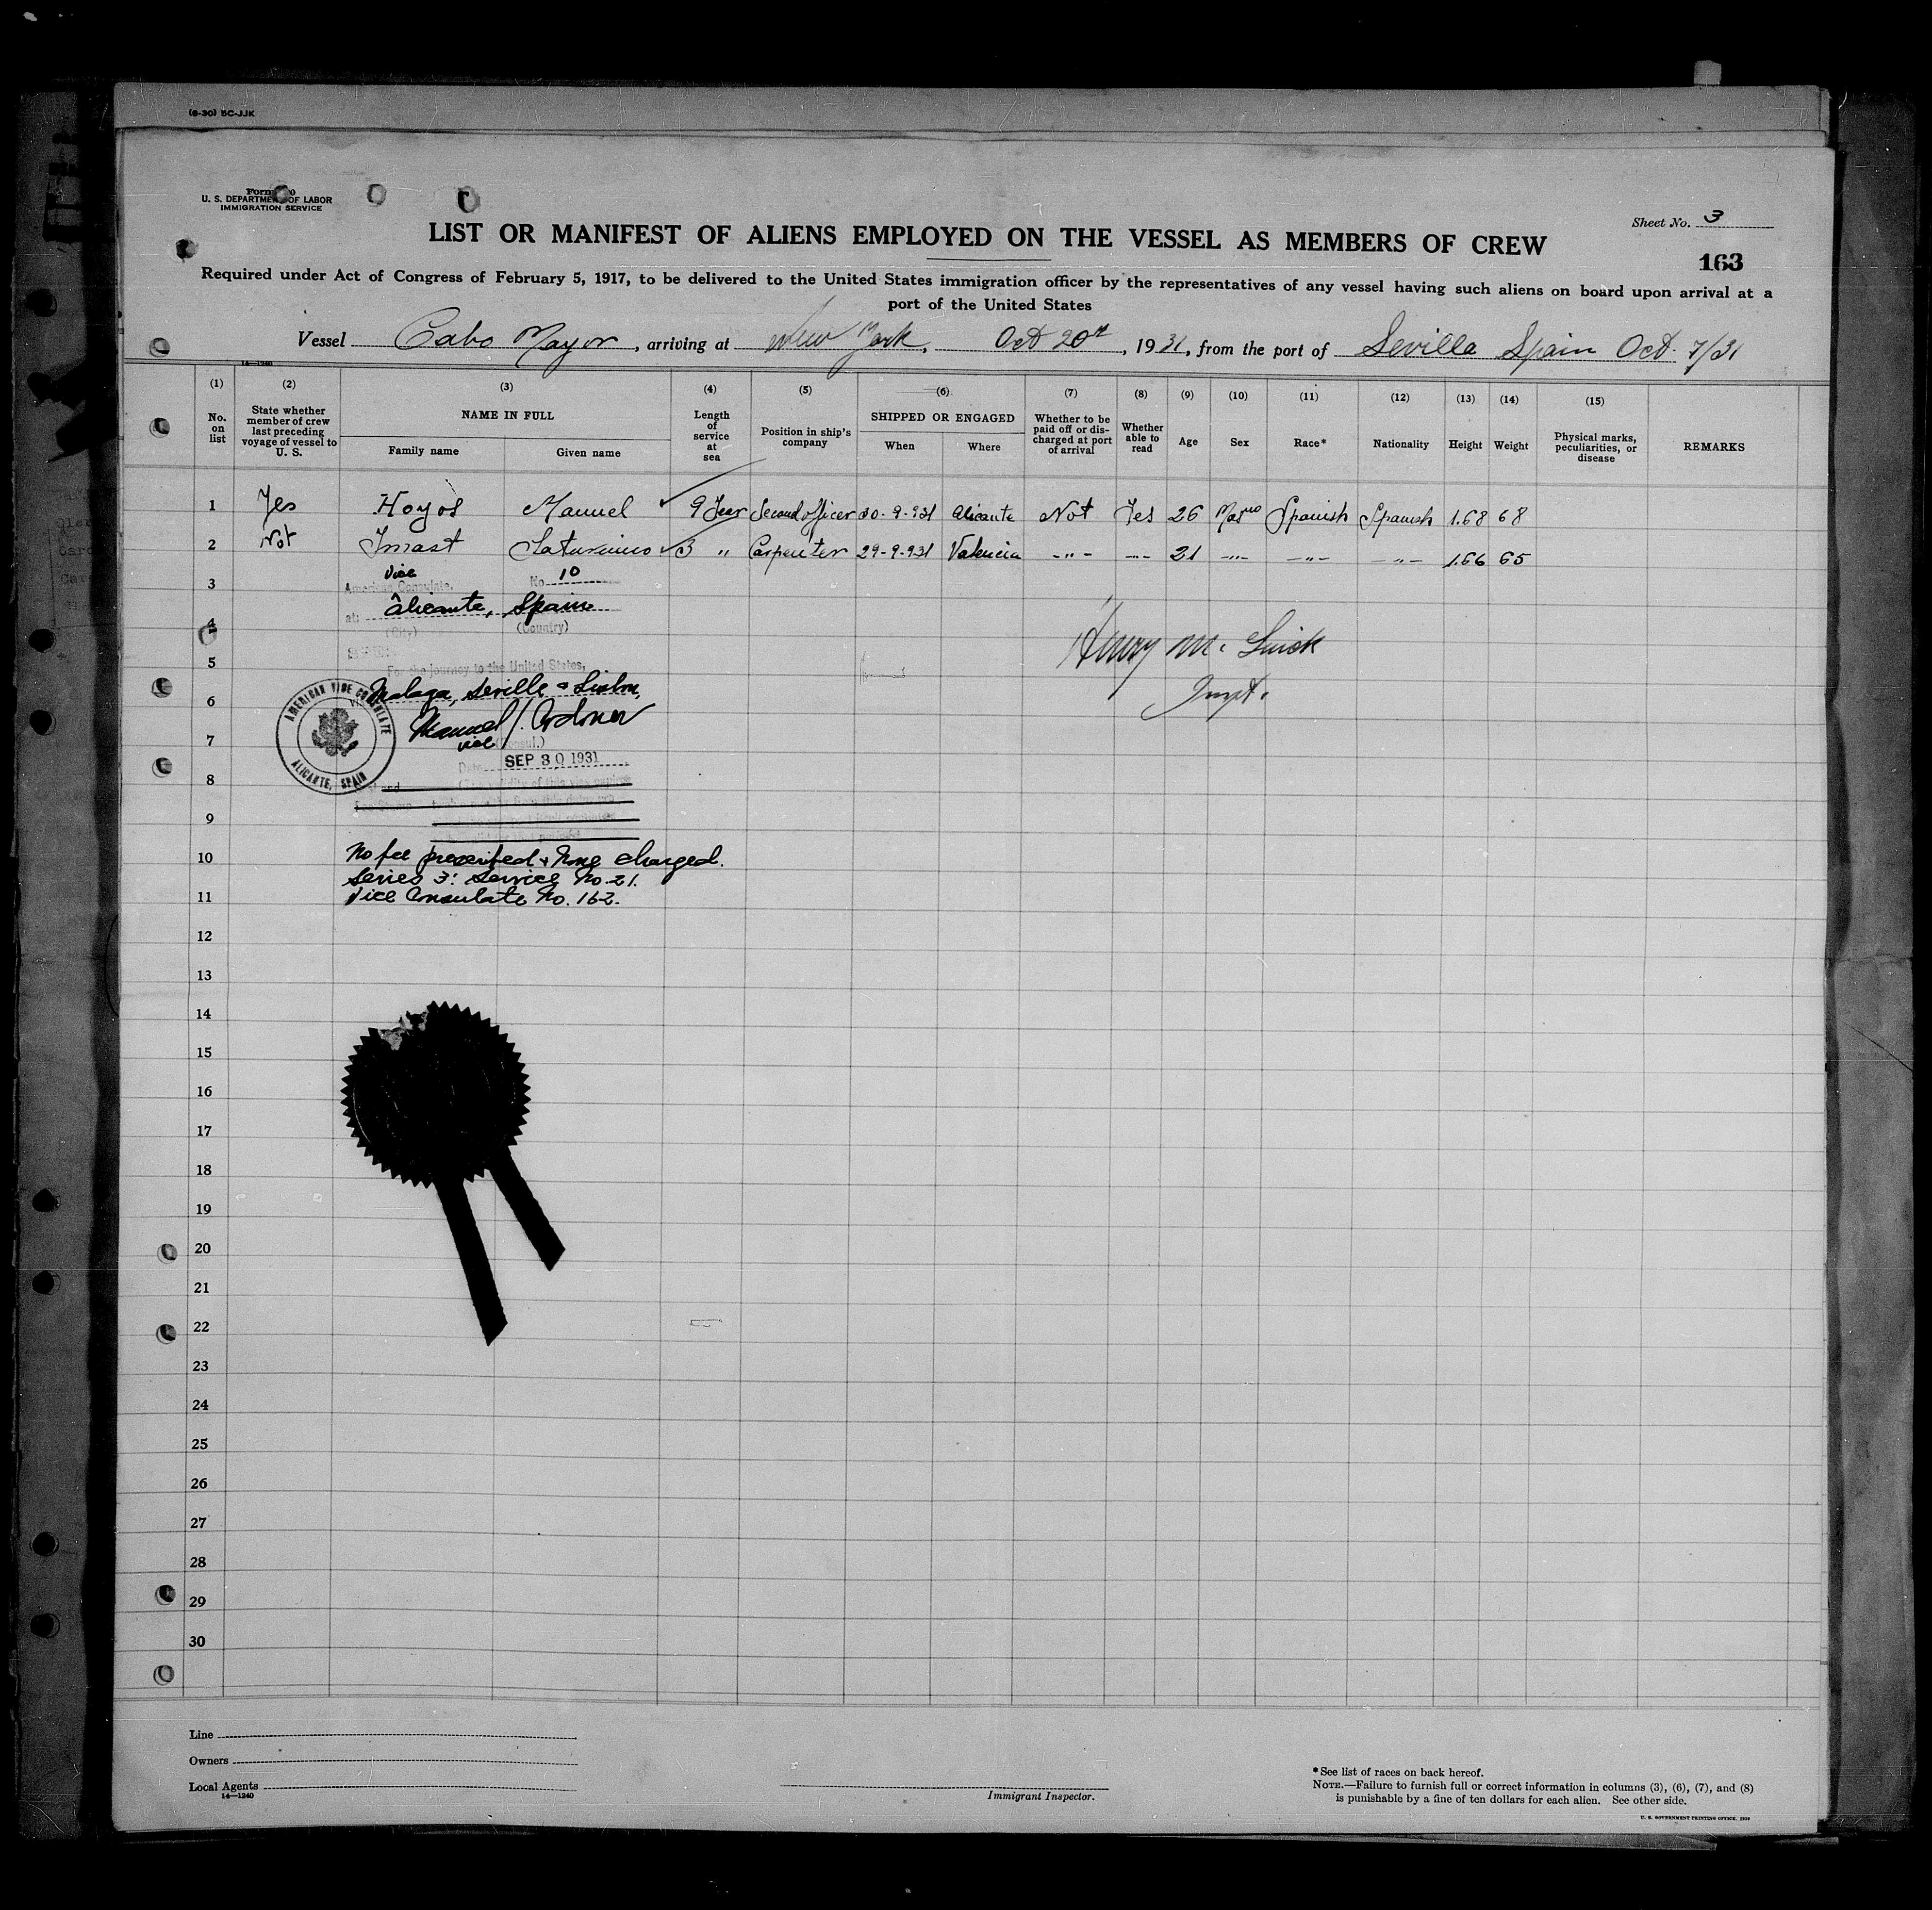 (6-30) BC-JJK
U. S. DEPARTMENT OF LABOR
IMMIGRATION SERVICE
Sheet No. 3
LIST OR MANIFEST OF ALIENS EMPLOYED ON THE VESSEL AS MEMBERS OF CREW
163
Required under Act of Congress of February 5, 1917, to be delivered to the United States immigration officer by the representatives of any vessel having such aliens on board upon arrival at a
port of the United States
Vessel Cabo Mayor, arriving at New York, Oct 20th, 1931, from the port of Sevilla Spain Oct. 7/31
14—1240
(1) (2) (3) (4) (5) (6) (7) (8) (9) (10) (11) (12) (13) (14) (15)
No. on list
State whether member of crew last preceding voyage of vessel to U. S.
NAME IN FULL
Family name
Given name
Length of service at sea
Position in ship's company
SHIPPED OR ENGAGED
When
Where
Whether to be paid off or discharged at port of arrival
Whether able to read
Age
Sex
Race*
Nationality
Height
Weight
Physical marks, peculiarities, or disease
REMARKS
1 Yes Hoyos Manuel 9 Year Second officer 30-9-931 Alicante Not Yes 26 Spanish Spanish 1.68 68
2 Not Saturnino 3 " Carpenter 29-9-931 Valencia -"- -"- 21 -"- -"- -"- 1.66 65
3
Vice
American Consulate. No. 10
at: Alicante, Spain
(City) (Country)
4
5
For the journey to the United States,
6
Malaga, Seville & Lisbon,
AMERICAN VICE CONSULATE
ALICANTE, SPAIN
7
Vice (Consul.)
Date SEP 30 1931
8
9
10
No fee prescribed & none charged.
Series 3: Service No. 21.
11
Vice Consulate No. 162.
Henry M.
Inspt.
12
13
14
15
16
17
18
19
20
21
22
23
24
25
26
27
28
29
30
Line
Owners
Local Agents
14—1240
Immigrant Inspector.
*See list of races on back hereof.
NOTE.—Failure to furnish full or correct information in columns (3), (6), (7), and (8)
is punishable by a fine of ten dollars for each alien. See other side.
U. S. GOVERNMENT PRINTING OFFICE: 1929